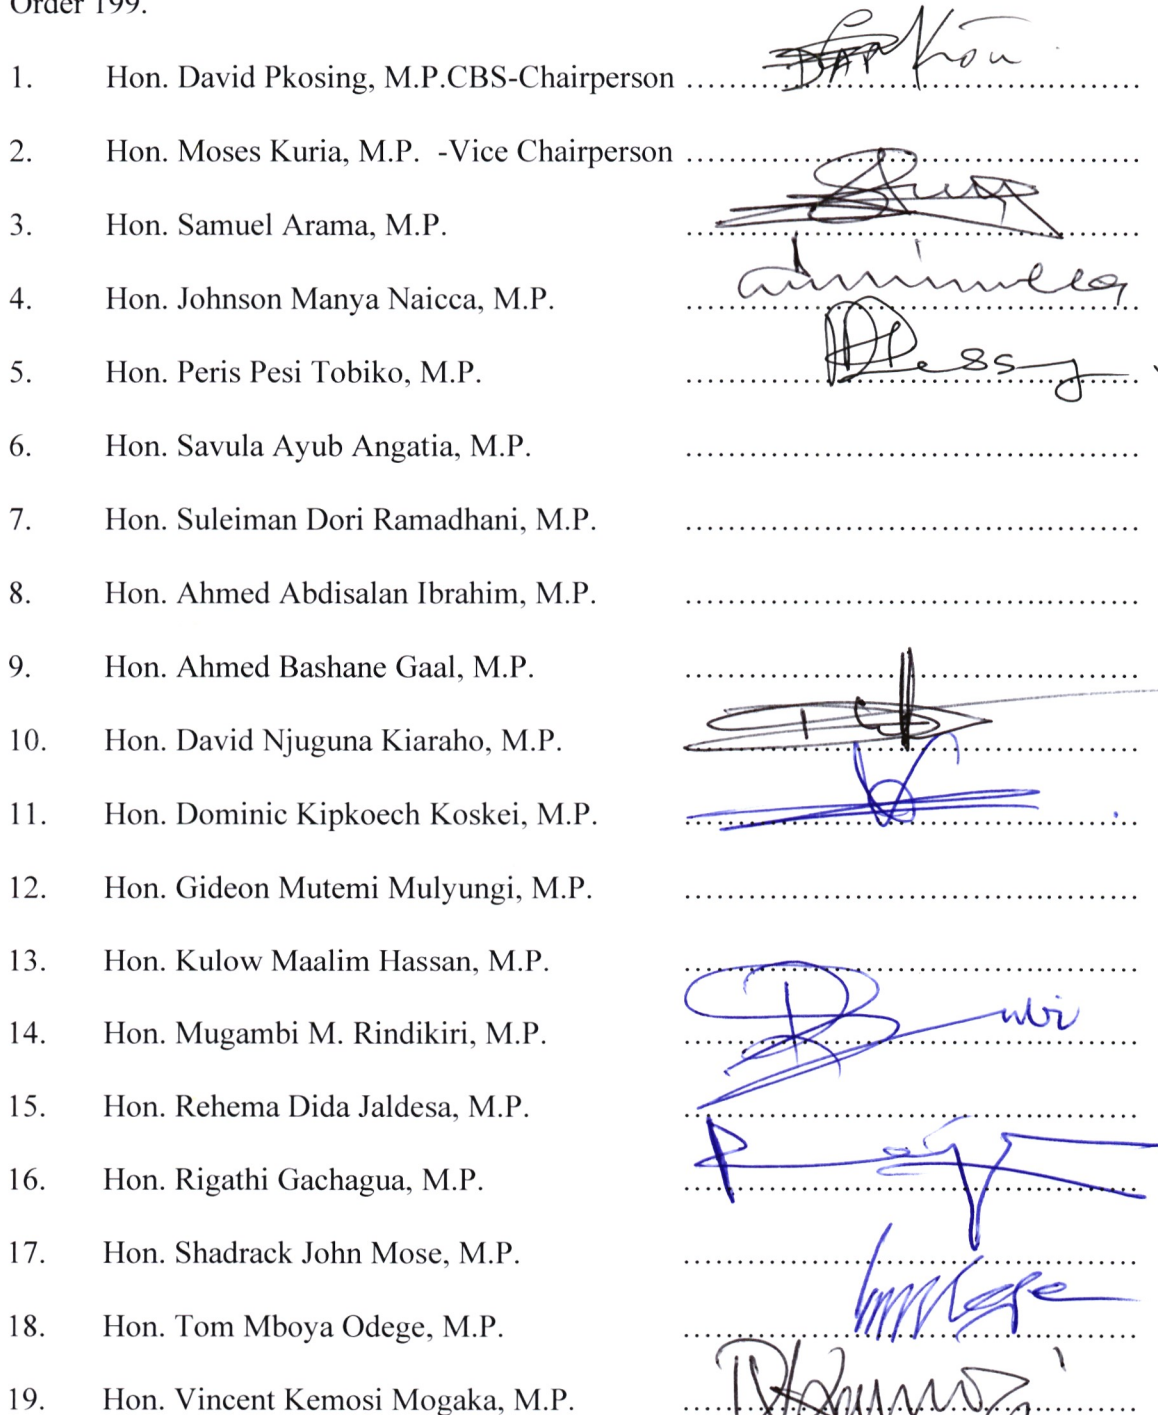 Order 199.
1. Hon. David Pkosing, M.P.CBS-Chairperson ..........................................
2. Hon. Moses Kuria, M.P. -Vice Chairperson ..........................................
3. Hon. Samuel Arama, M.P. ..........................................
4. Hon. Johnson Manya Naicca, M.P. ..........................................
5. Hon. Peris Pesi Tobiko, M.P. ..........................................
6. Hon. Savula Ayub Angatia, M.P. ..........................................
7. Hon. Suleiman Dori Ramadhani, M.P. ..........................................
8. Hon. Ahmed Abdisalan Ibrahim, M.P. ..........................................
9. Hon. Ahmed Bashane Gaal, M.P. ..........................................
10. Hon. David Njuguna Kiaraho, M.P. ..........................................
11. Hon. Dominic Kipkoech Koskei, M.P. ..........................................
12. Hon. Gideon Mutemi Mulyungi, M.P. ..........................................
13. Hon. Kulow Maalim Hassan, M.P. ..........................................
14. Hon. Mugambi M. Rindikiri, M.P. ..........................................
15. Hon. Rehema Dida Jaldesa, M.P. ..........................................
16. Hon. Rigathi Gachagua, M.P. ..........................................
17. Hon. Shadrack John Mose, M.P. ..........................................
18. Hon. Tom Mboya Odege, M.P. ..........................................
19. Hon. Vincent Kemosi Mogaka, M.P. ..........................................